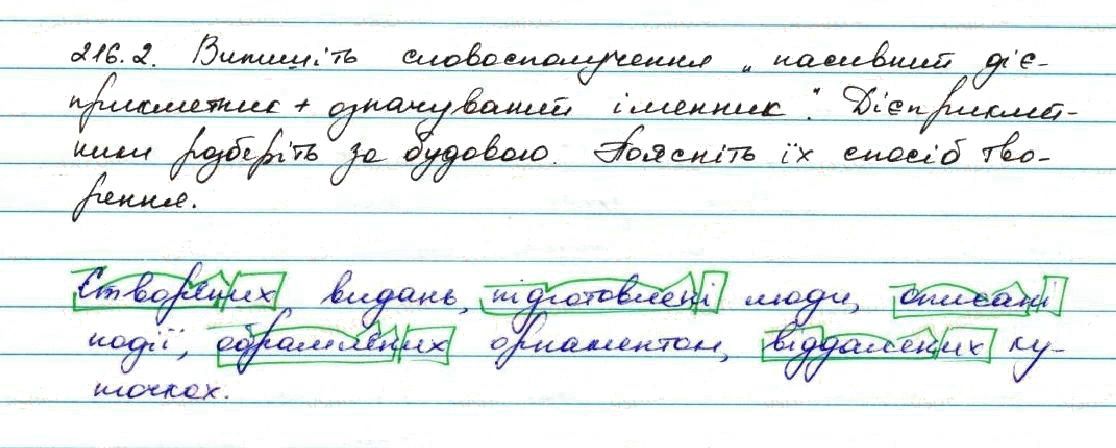 216.2. Випишіть словосполучення „пасивний діє-
прикметник + означуваний іменник". Дієприкмет-
ники розберіть за будовою. Поясніть їх спосіб тво-
рення.
Створених видань, підготовлені люди, описані
події, обрамлених орнаментом, віддалених ку-
точках.